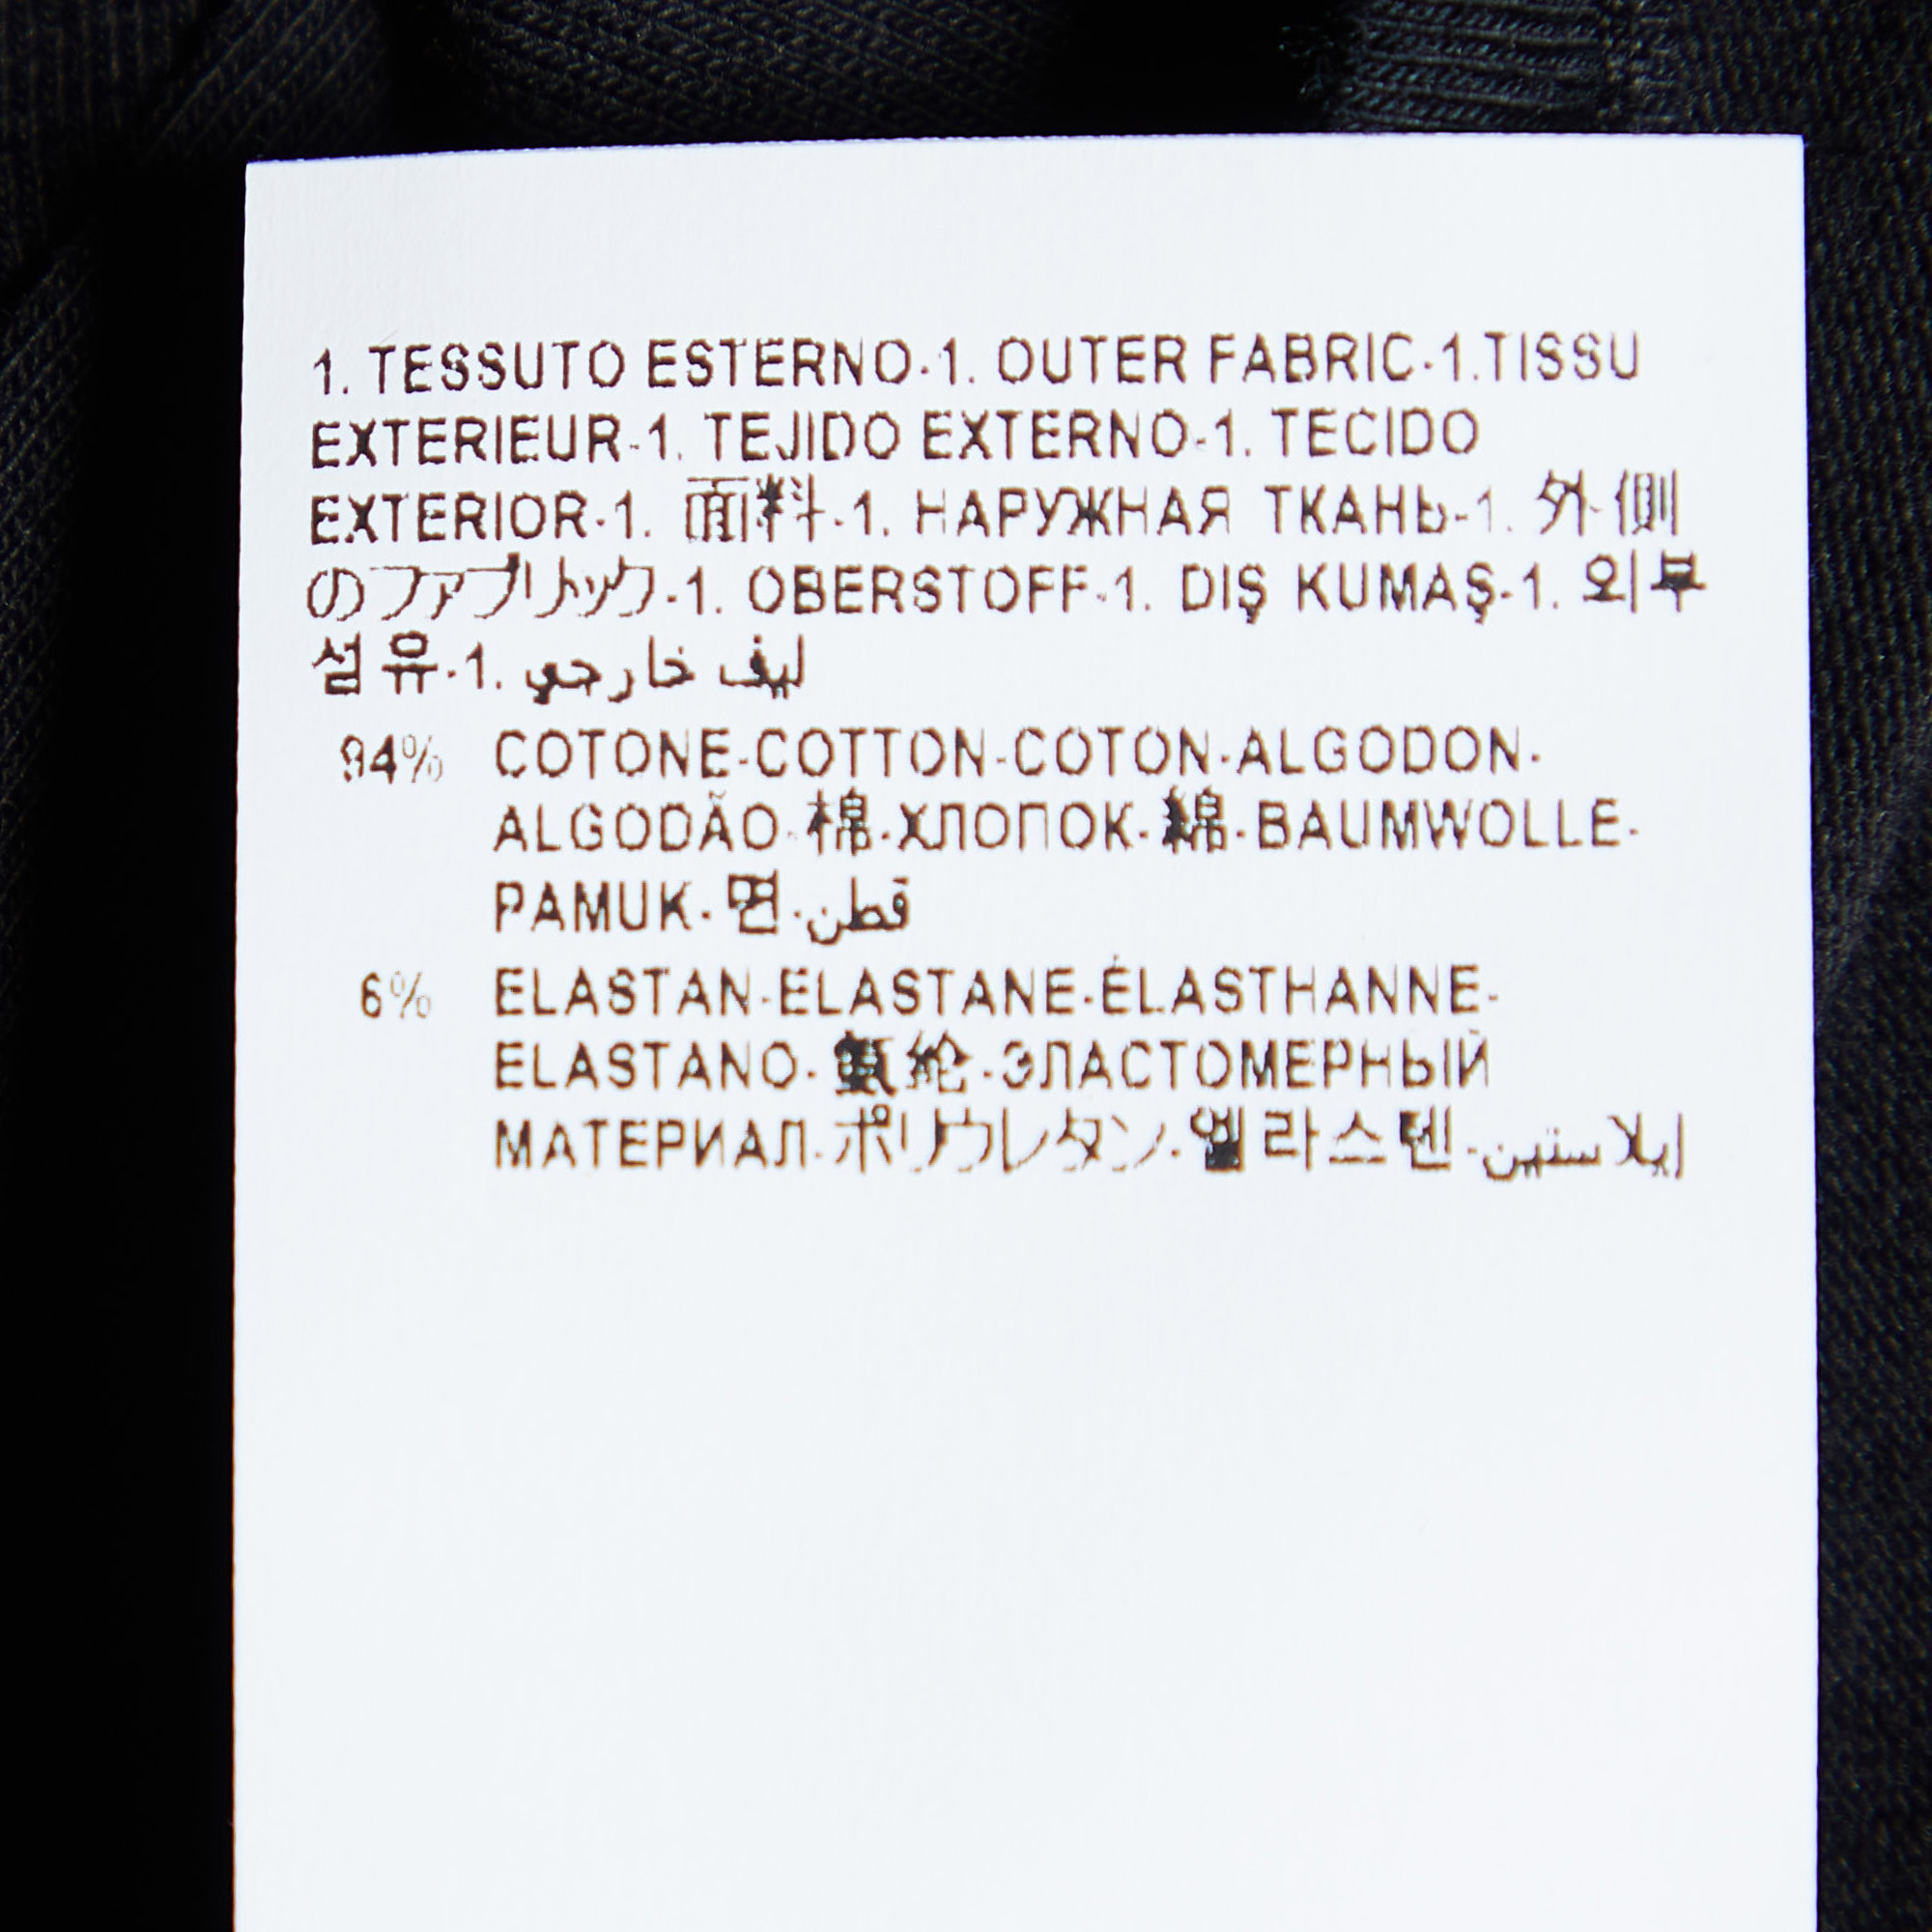 1. TESSUTO ESTERNO-1. OUTER FABRIC-1.TISSU
EXTERIEUR-1. TEJIDO EXTERNO-1. TECIDO
EXTERIOR-1. 面料-1. НАРУЖНАЯ ТКАНЬ-1. 外側
のファブリック-1. OBERSTOFF-1. DIŞ KUMAŞ-1. 외부
섬유-1. ليف خارجي
94% COTONE-COTTON-COTON-ALGODON-
ALGODÃO-棉-ХЛОПОК-綿-BAUMWOLLE-
PAMUK-면-قطن
6% ELASTAN-ELASTANE-ÉLASTHANNE-
ELASTANO-氨纶-ЭЛАСТОМЕРНЫЙ
МАТЕРИАЛ-ポリウレタン-엘라스텐-إيلاستين